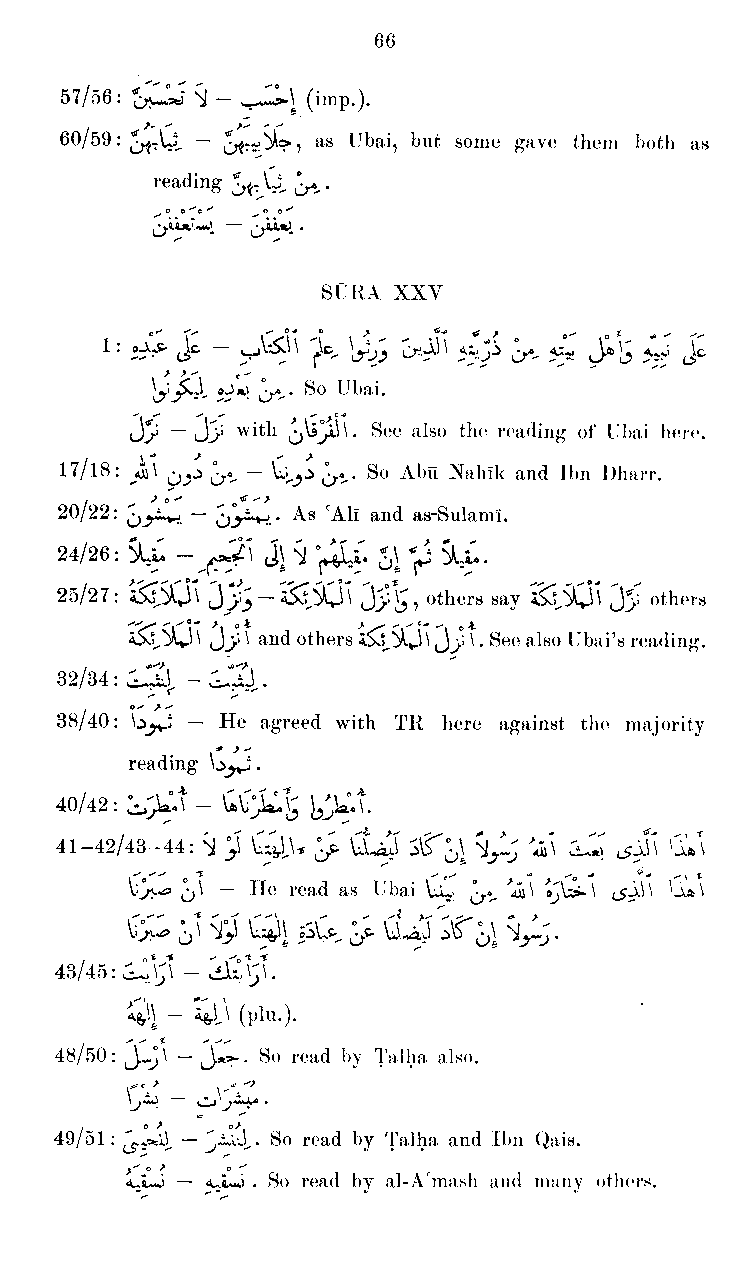 66
57/56: لَا تَحْسَبَنَّ – إِحْسَبِ (imp.).
60/59: ثِيَابَهُنَّ – جَلَابِيبَهُنَّ, as Ubai, but some gave them both as
reading مِنْ ثِيَابِهِنَّ.
يَسْتَعْفِفْنَ – يَعْفِفْنَ.
SŪRA XXV
1: عَلَى عَبْدِهِ – عَلَى نَبِيِّهِ وَأَهْلِ بَيْتِهِ مِنْ ذُرِّيَّتِهِ ٱلَّذِينَ وَرِثُوا عِلْمَ ٱلْكِتَابِ
مِنْ بَعْدِهِ لِيَكُونُوا. So Ubai.
نَزَّلَ – نَزَلَ with ٱلْفُرْقَانُ. See also the reading of Ubai here.
17/18: مِنْ دُونِ ٱللهِ – مِنْ دُونِنَا. So Abū Nahīk and Ibn Dharr.
20/22: يَمْشُونَ – يُمَشَّوْنَ. As ʿAlī and as-Sulamī.
24/26: مَقِيلاً – مَقِيلاً ثُمَّ إِنَّ مَقِيلَهُمْ لَا إِلَى ٱلْجَحِيمِ.
25/27: وَنُزِّلَ ٱلْمَلَائِكَةُ – وَأَنْزَلَ ٱلْمَلَائِكَةَ, others say نَزَّلَ ٱلْمَلَائِكَةَ others
أُنْزِلُ ٱلْمَلَائِكَةَ and others أُنْزِلَ ٱلْمَلَائِكَةُ. See also Ubai's reading.
32/34: لِنُثَبِّتَ – لِيُثَبِّتَ.
38/40: ثَمُودَاْ – He agreed with TR here against the majority
reading ثَمُودًا.
40/42: أُمْطِرَتْ – أُمْطِرُوا وَأَمْطَرْنَاهَا.
41–42/43–44: أَهٰذَا ٱلَّذِى بَعَثَ ٱللهُ رَسُولاً إِنْ كَادَ لَيُضِلُّنَا عَنْ ءَالِهَتِنَا لَوْ لَا
أَنْ صَبَرْنَا – He read as Ubai أَهٰذَا ٱلَّذِى ٱخْتَارَهُ ٱللهُ مِنْ بَيْنِنَا
رَسُولاً إِنْ كَادَ لَيُضِلُّنَا عَنْ عِبَادَةِ إِلٰهَتِنَا لَوْلَا أَنْ صَبَرْنَا.
43/45: أَرَأَيْتَ – أَرَأَيْتَكَ.
إِلٰهَهُ – اٰلِهَةً (plu.).
48/50: أَرْسَلَ – جَعَلَ. So read by Ṭalḥa also.
بُشْرًا – مُبَشِّرَاتٍ.
49/51: لِنُحْيِىَ – لِنُنْشِرَ. So read by Ṭalḥa and Ibn Qais.
نُسْقِيَهُ – نَسْقِيهِ. So read by al-Aʿmash and many others.